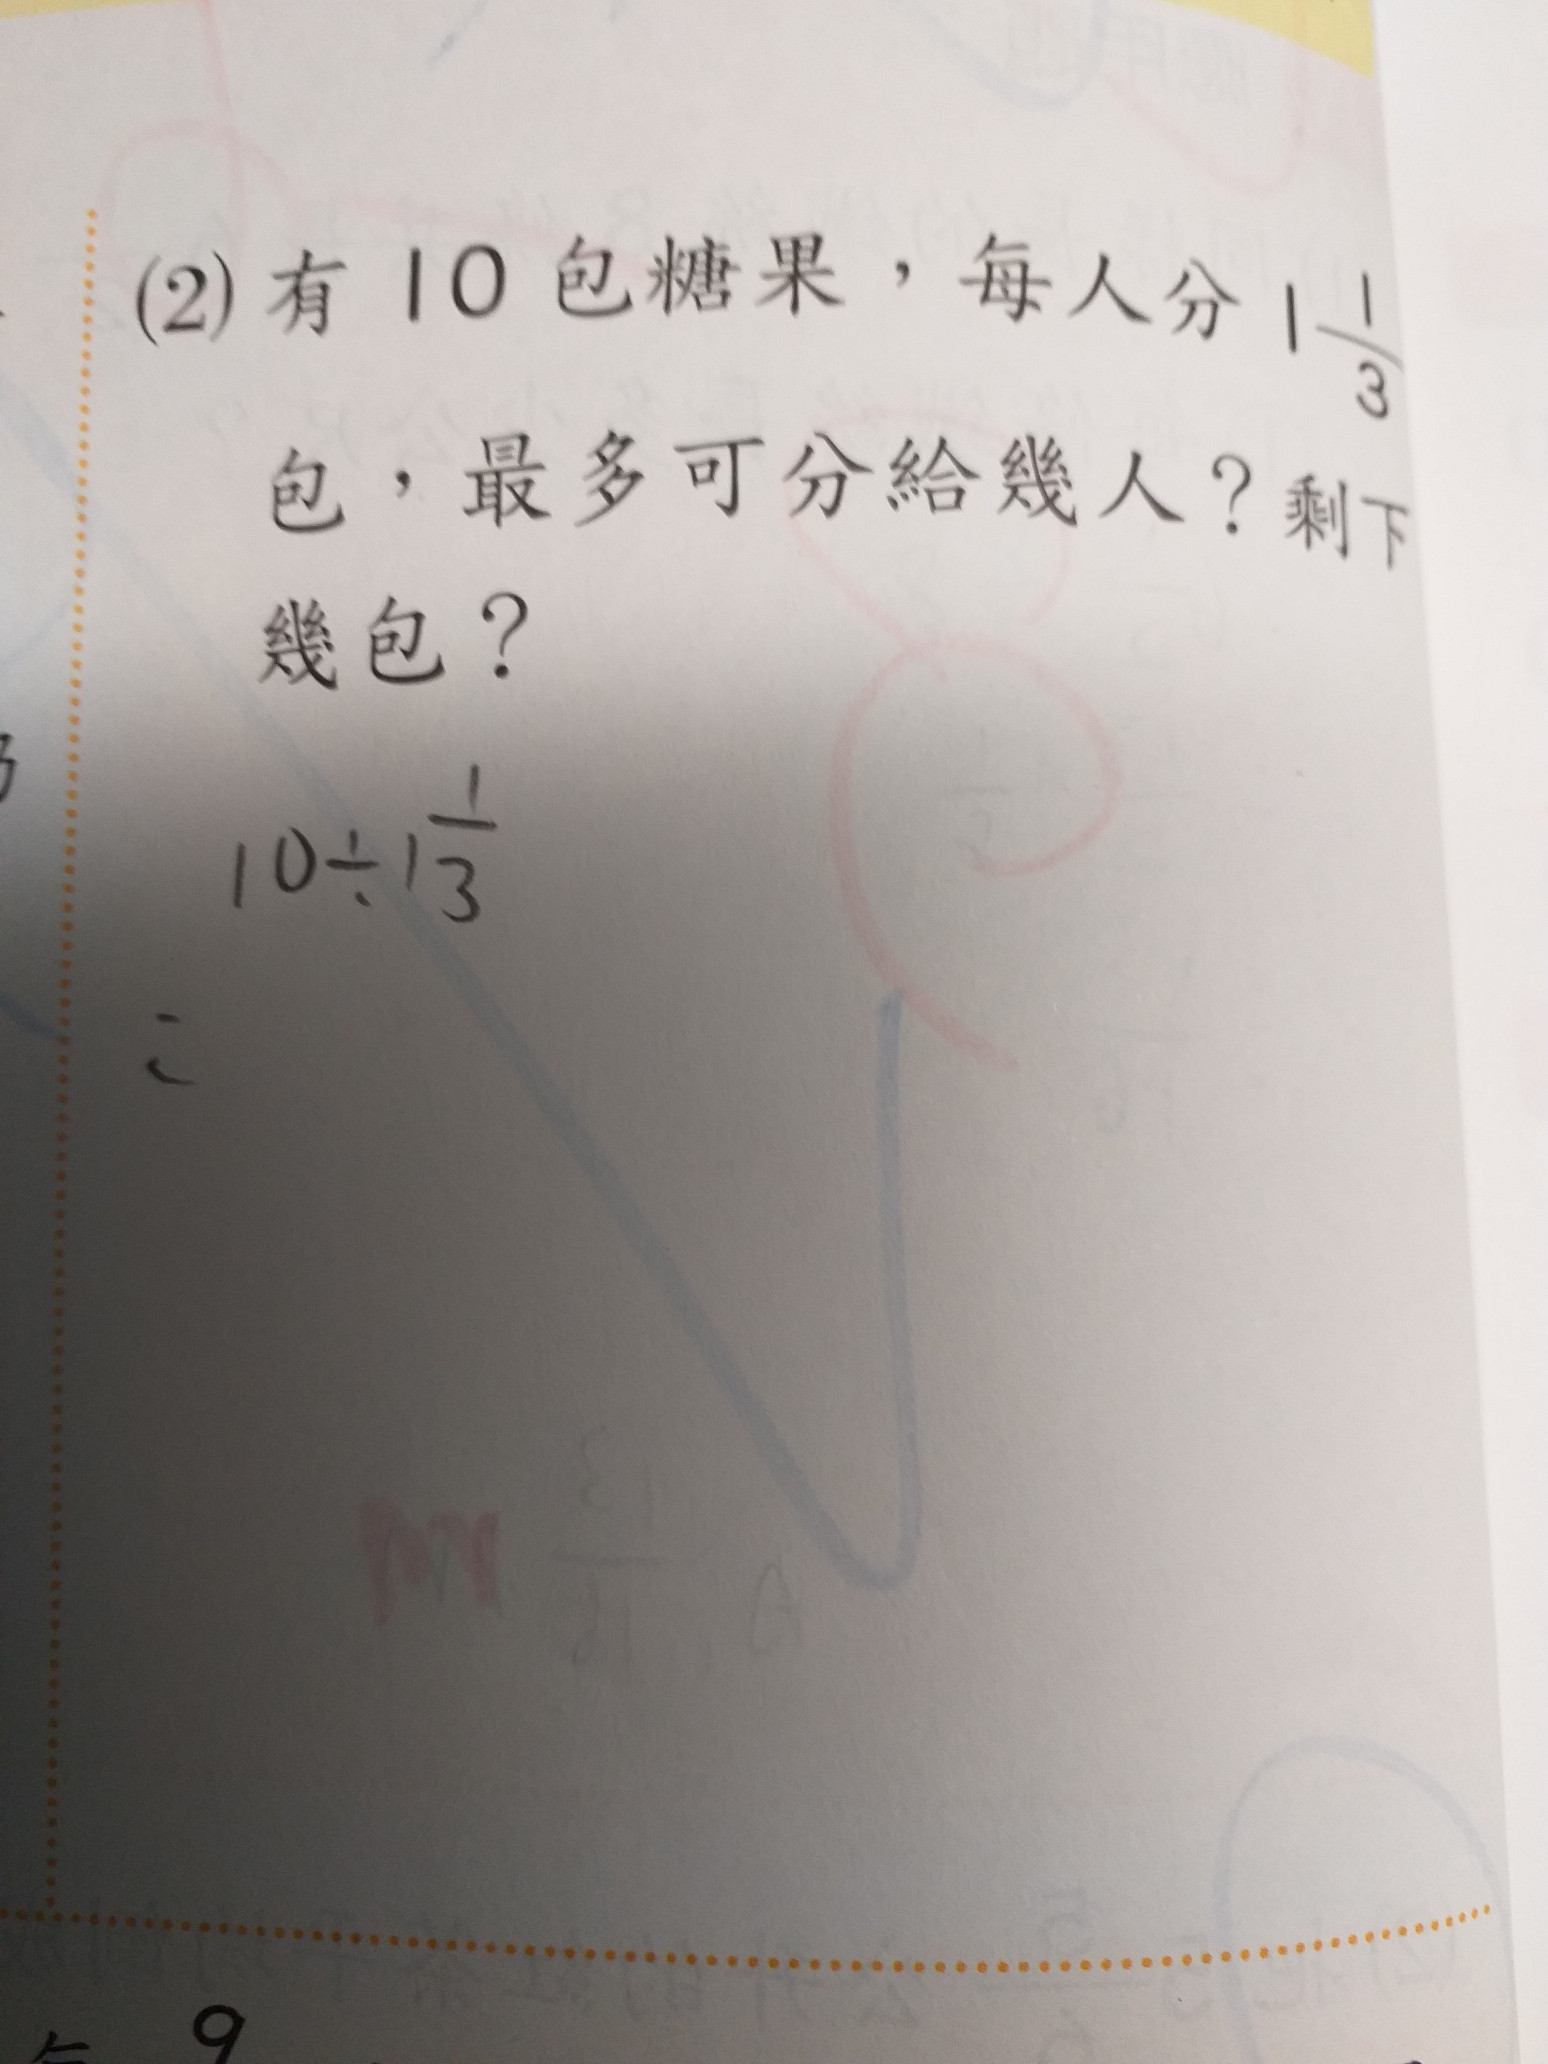 (2) 有 10 包糖果，每人分 1 1/3
包，最多可分給幾人？剩下
幾包？
10÷1 1/3
=
9